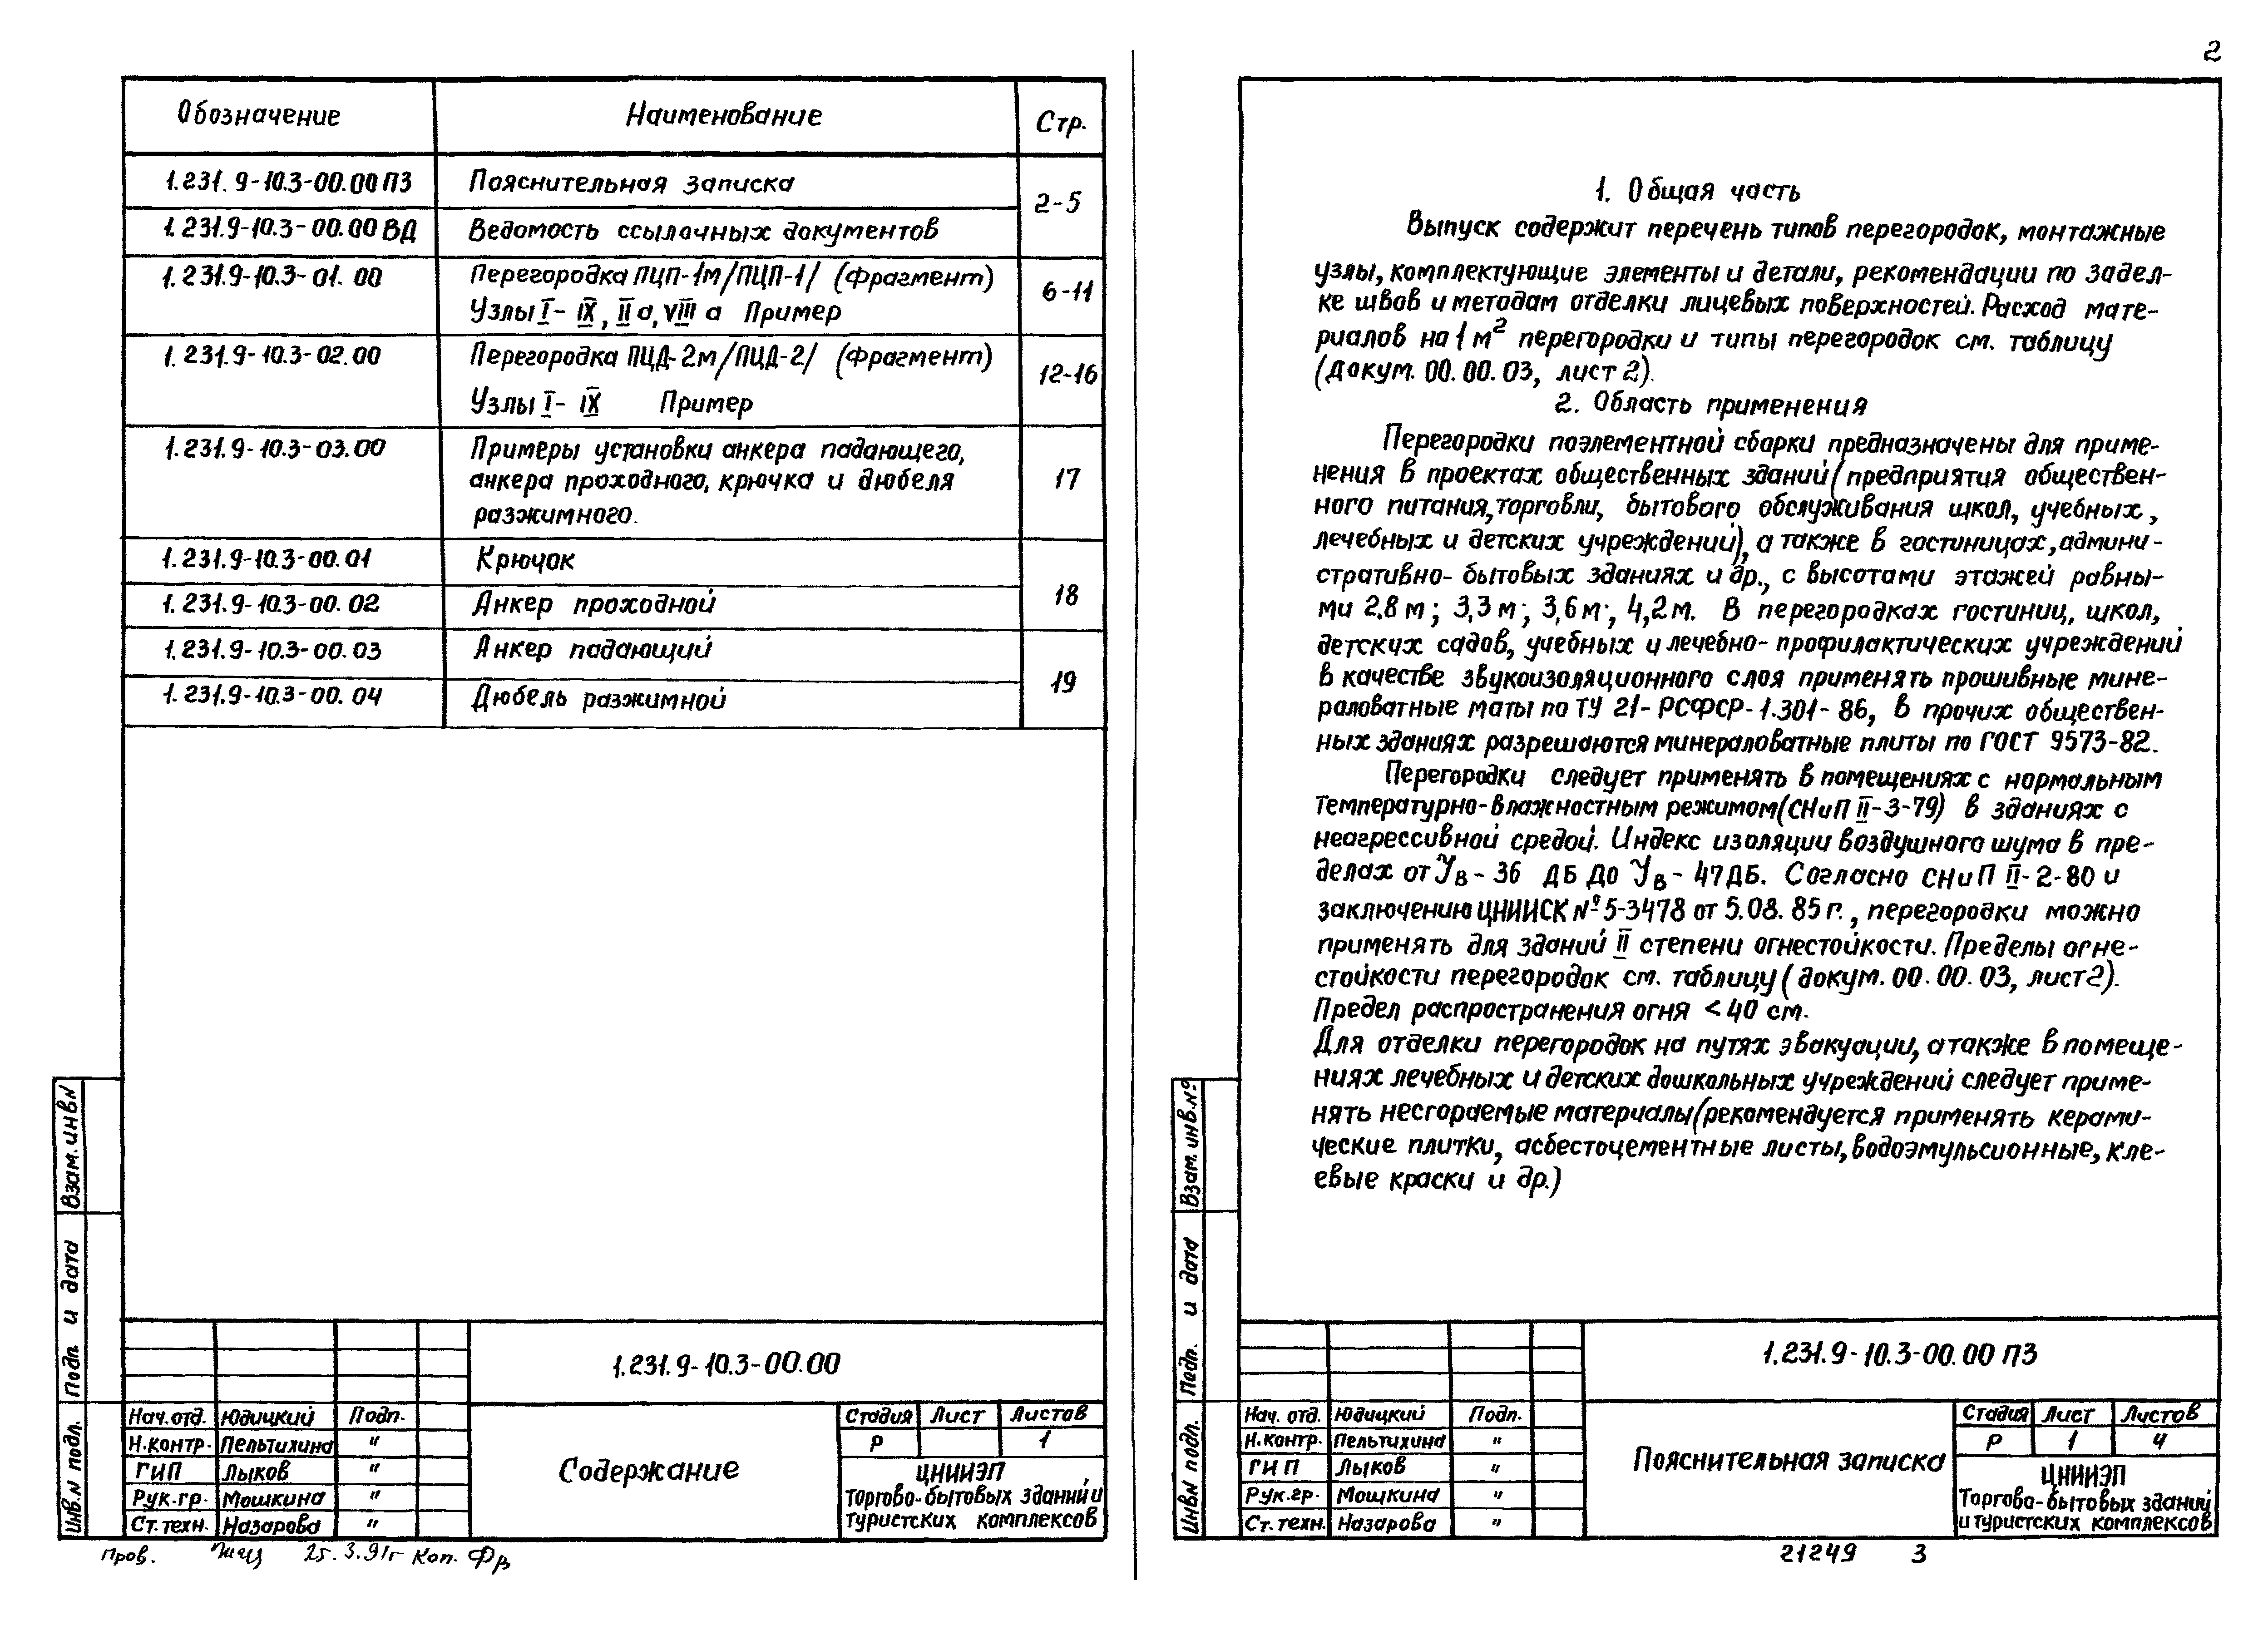 Обозначение Наименование Стр.
1.231.9-10.3-00.00 ПЗ Пояснительная записка 2-5
1.231.9-10.3-00.00 ВД Ведомость ссылочных документов
1.231.9-10.3-01.00 Перегородка ПЦП-1м/ПЦП-1/ (фрагмент) 6-11
Узлы I- IX, II а, VIII а Пример
1.231.9-10.3-02.00 Перегородка ПЦД-2м/ПЦД-2/ (фрагмент) 12-16
Узлы I- IX Пример
1.231.9-10.3-03.00 Примеры установки анкера падающего,
анкера проходного, крючка и дюбеля 17
разжимного.
1.231.9-10.3-00.01 Крючок 18
1.231.9-10.3-00.02 Анкер проходной
1.231.9-10.3-00.03 Анкер падающий 19
1.231.9-10.3-00.04 Дюбель разжимной
Взам.инвN
Подп. и дата
Инв.N подл.
1.231.9-10.3-00.00
Нач.отд. Юдицкий Подп.
Н.контр. Пельтихина "
ГИП Лыков "
Рук.гр. Мошкина "
Ст.техн. Назарова "
Содержание
Стадия Лист Листов
Р 1
ЦНИИЭП
торгово-бытовых зданий и
туристских комплексов
Пров. 25.3.91г Коп.
2
1. Общая часть
Выпуск содержит перечень типов перегородок, монтажные
узлы, комплектующие элементы и детали, рекомендации по задел-
ке швов и методам отделки лицевых поверхностей. Расход мате-
риалов на 1 м² перегородки и типы перегородок см. таблицу
(докум. 00.00.03, лист 2).
2. Область применения
Перегородки поэлементной сборки предназначены для приме-
нения в проектах общественных зданий (предприятия обществен-
ного питания, торговли, бытового обслуживания школ, учебных,
лечебных и детских учреждений), а также в гостиницах, админи-
стративно-бытовых зданиях и др., с высотами этажей равны-
ми 2,8 м; 3,3 м; 3,6 м; 4,2 м. В перегородках гостиниц, школ,
детских садов, учебных и лечебно-профилактических учреждений
в качестве звукоизоляционного слоя применять прошивные мине-
раловатные маты по ТУ 21-РСФСР-1.301-86, в прочих обществен-
ных зданиях разрешаются минераловатные плиты по ГОСТ 9573-82.
Перегородки следует применять в помещениях с нормальным
температурно-влажностным режимом (СНиП II-3-79) в зданиях с
неагрессивной средой. Индекс изоляции воздушного шума в пре-
делах от Ув - 36 ДБ ДО Ув - 47 ДБ. Согласно СНиП II-2-80 и
заключению ЦНИИСК №5-3478 от 5.08.85 г., перегородки можно
применять для зданий II степени огнестойкости. Пределы огне-
стойкости перегородок см. таблицу (докум. 00.00.03, лист 2).
Предел распространения огня < 40 см.
Для отделки перегородок на путях эвакуации, а также в помеще-
ниях лечебных и детских дошкольных учреждений следует приме-
нять несгораемые материалы (рекомендуется применять керами-
ческие плитки, асбестоцементные листы, водоэмульсионные, кле-
евые краски и др.)
Взам.инв.№
Подп. и дата
ИнвN подл.
1.231.9-10.3-00.00 ПЗ
Нач. отд. Юдицкий Подп.
Н.контр. Пельтихина "
ГИП Лыков "
Рук.гр. Мошкина "
Ст.техн. Назарова "
Пояснительная записка
Стадия Лист Листов
Р 1 4
ЦНИИЭП
Торгово-бытовых зданий
и туристских комплексов
21249 3